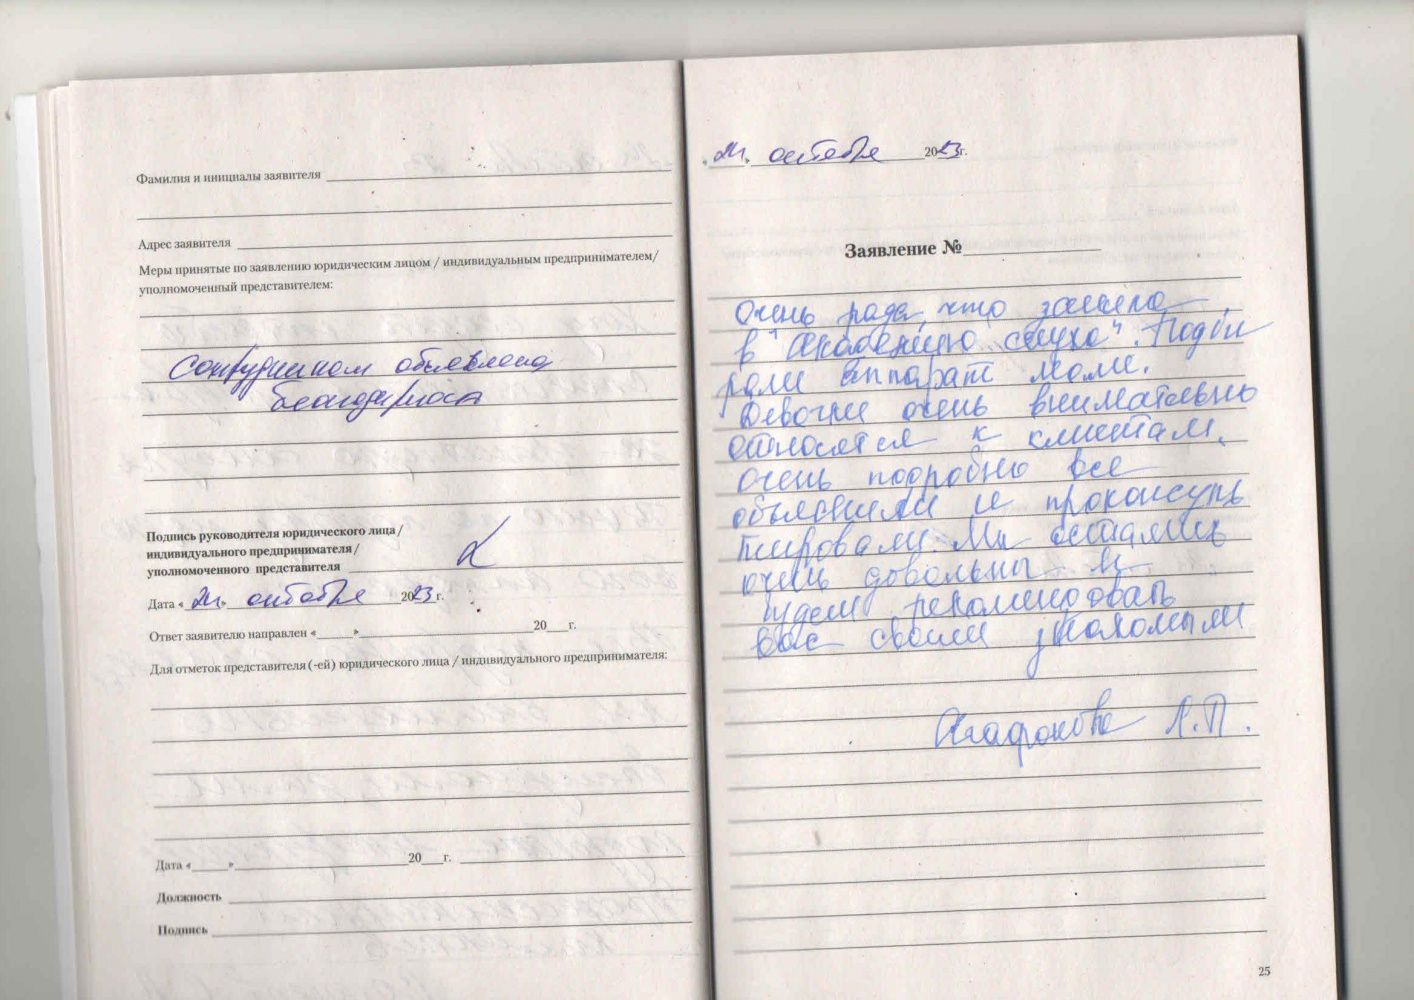 Фамилия и инициалы заявителя
Адрес заявителя
Меры принятые по заявлению юридическим лицом / индивидуальным предпринимателем/
уполномоченный представителем:
Сотрудникам объявлена
благодарность
Подпись руководителя юридического лица/
индивидуального предпринимателя/
уполномоченного представителя
Дата « 24 » октября 2023 г.
Ответ заявителю направлен «      » 20   г.
Для отметок представителя (-ей) юридического лица / индивидуального предпринимателя:
Дата «      » 20   г.
Должность
Подпись
« 24 » октября 2023 г.
Заявление №
Очень рада, что зашла
в "Академию слуха". Подби
рали аппарат маме.
Девочки очень внимательно
относятся к клиентам,
очень подробно все
объяснили и проконсуль
тировали. Мы остались
очень довольны и
будем рекомендовать
вас своим знакомым
Агафонова Л.П.
25